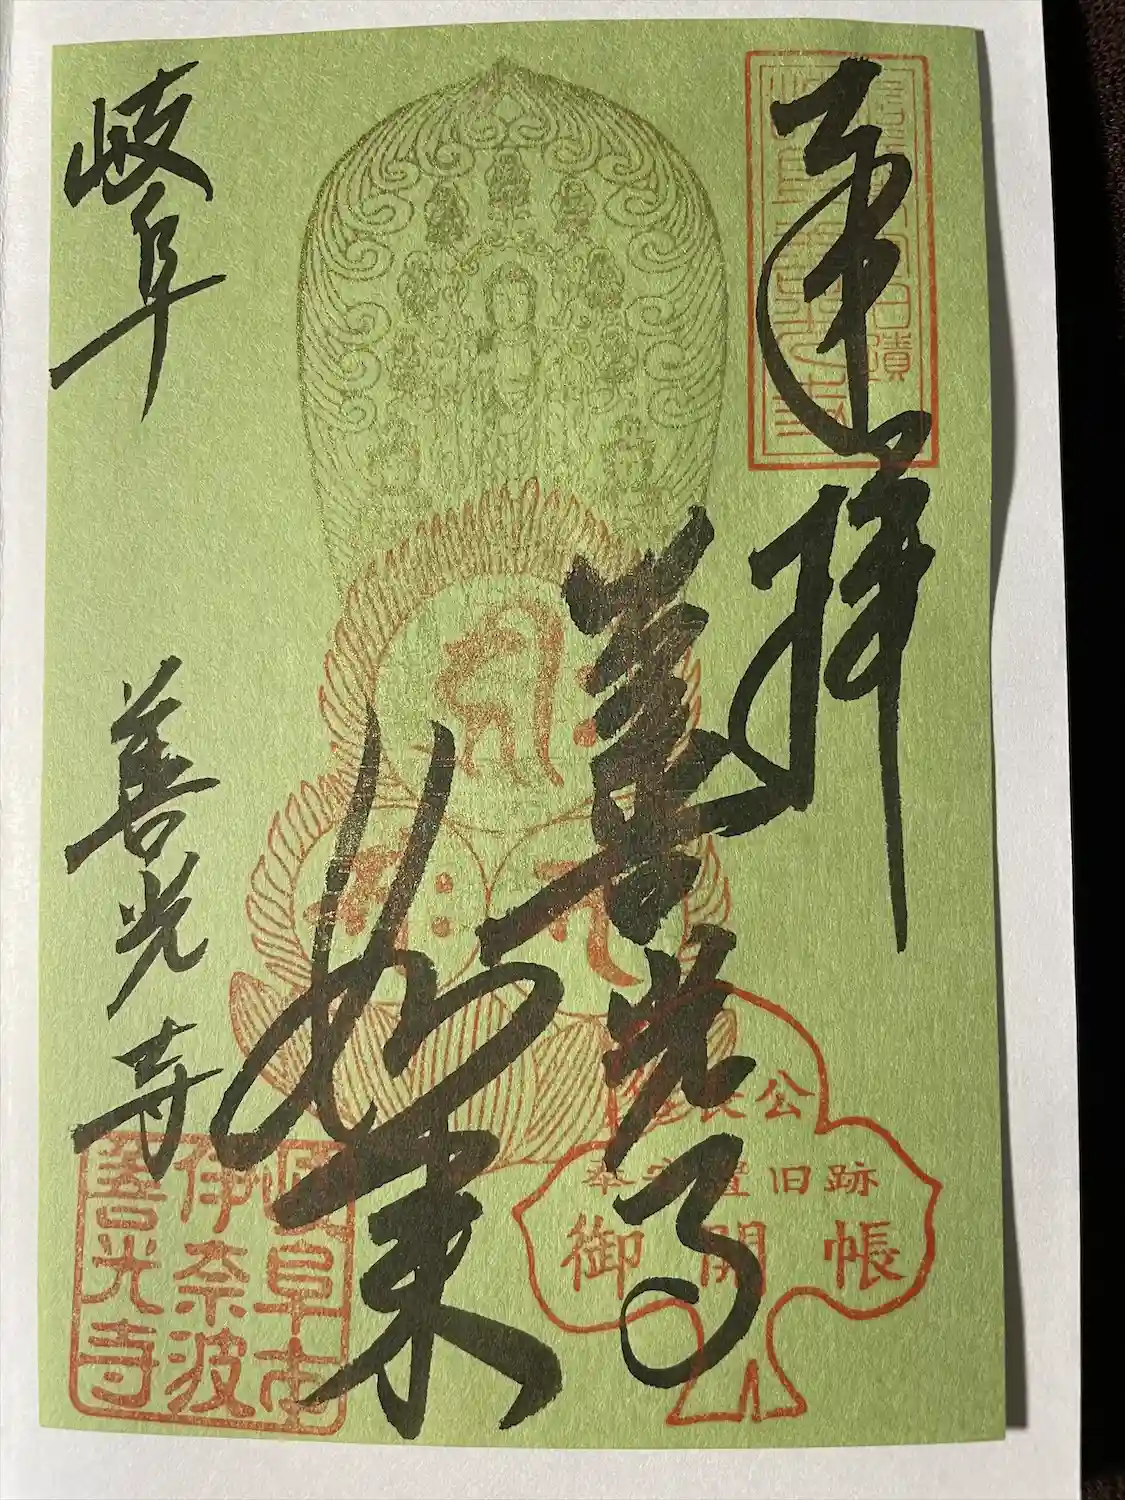 奉拝
善光寺
如来
岐阜
善光寺
信長公
奉安置旧跡
御開帳
岐阜市
伊奈波
善光寺